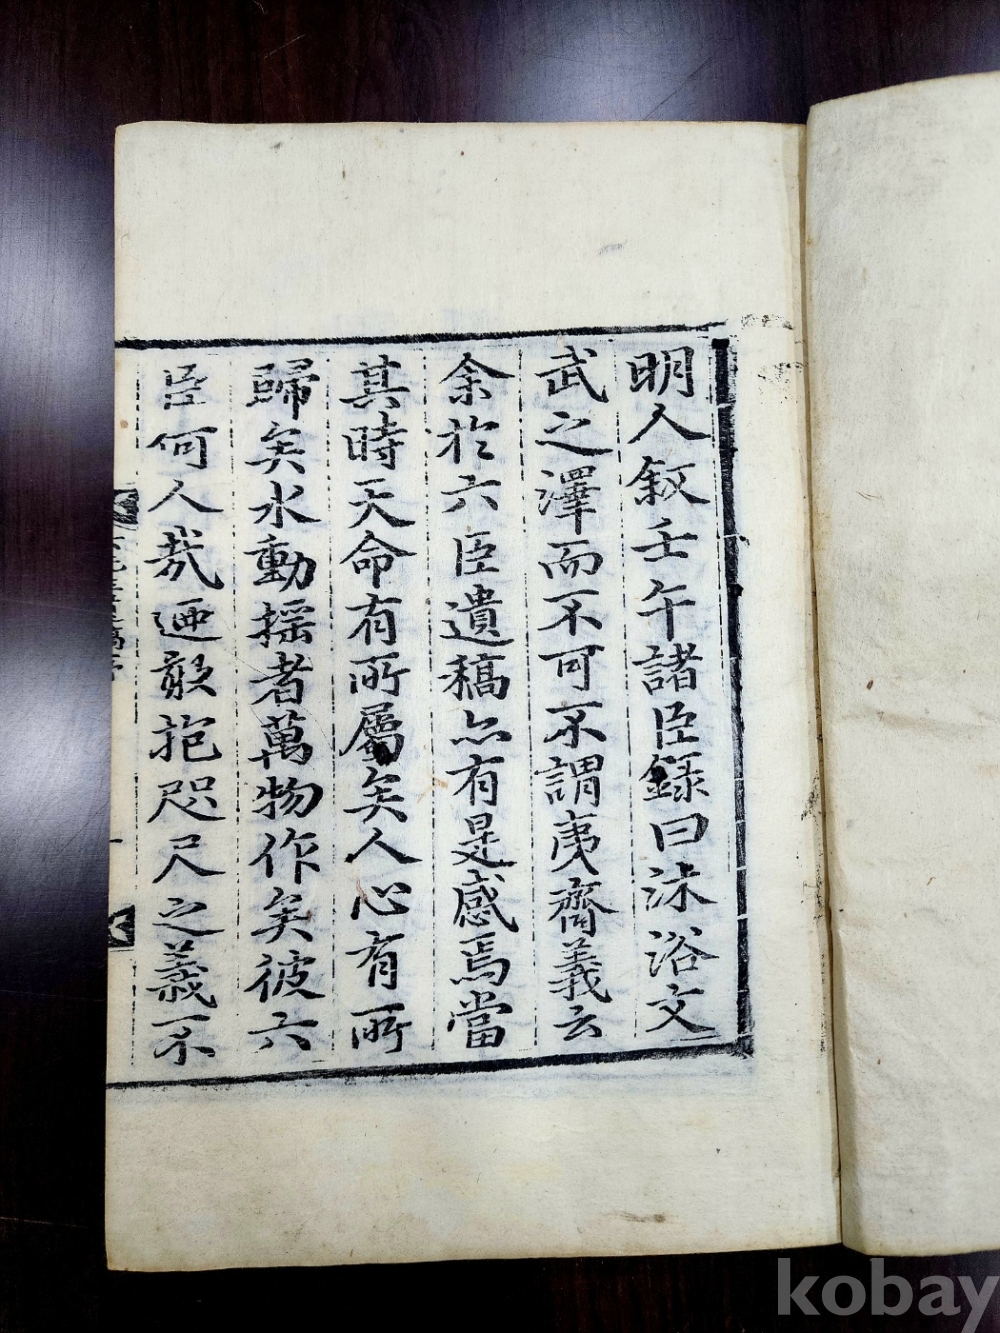 明人叙壬午諸臣録曰沐浴文
武之澤而不可不謂夷齊義云
余於六臣遺稿亦有是感焉當
其時天命有所屬矣人心有所
歸矣水動揺者萬物作矣彼六
臣何人㢤廼敢抱咫尺之義不
kobay